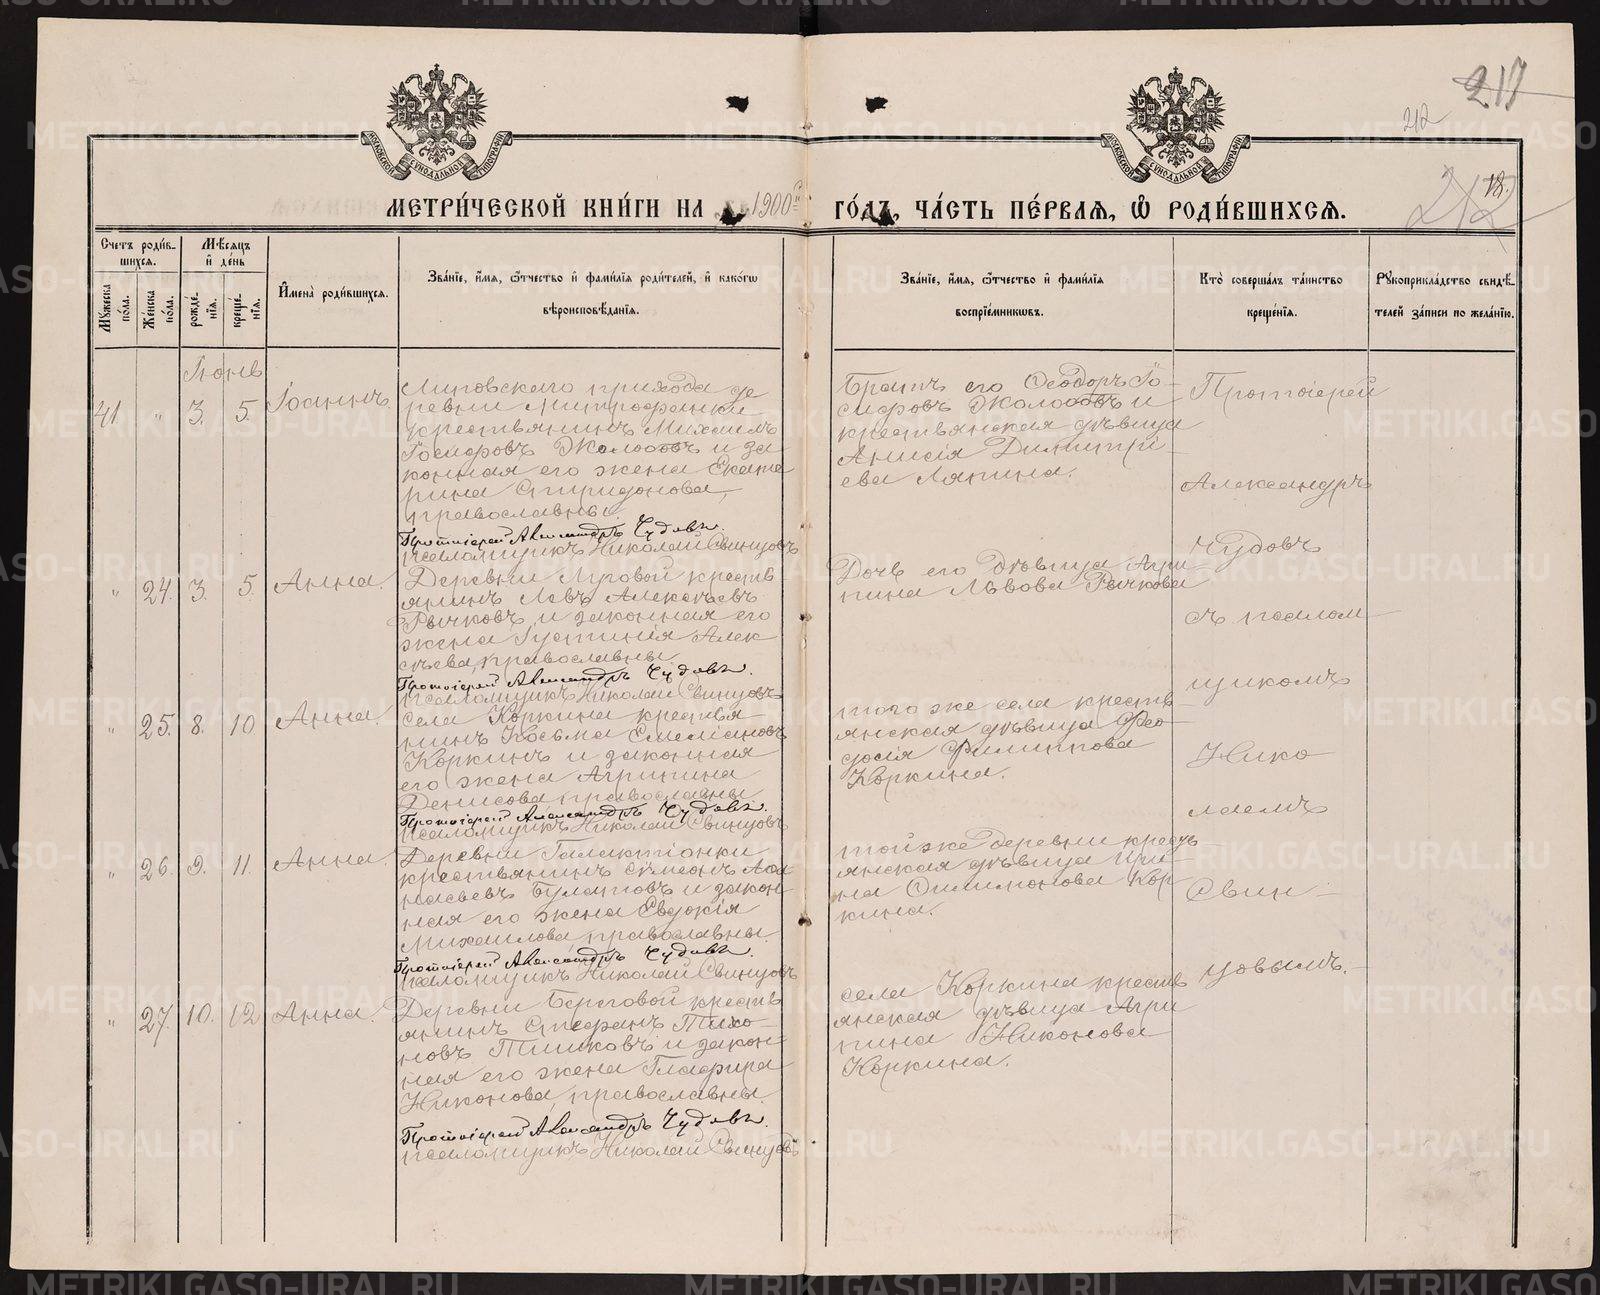 217
212
212
18.
МОСКОВСКОЙ СѴНОДАЛЬНОЙ ТИПОГРАФІИ
МОСКОВСКОЙ СѴНОДАЛЬНОЙ ТИПОГРАФІИ
МЕТРИ́ЧЕСКОЙ КНИ́ГИ НА 1900й ГО́ДЪ, ЧА́СТЬ ПЕ́РВАѦ, Ѡ РОДИ́ВШИХСѦ.
Счетъ роди́в-
шихсѧ.
Мꙋжеска по́ла.
Же́нска по́ла.
Мѣ́сѧцъ
и де́нь
рожде́-
нїѧ.
креще́-
нїѧ.
Имена̀ роди́вшихсѧ.
Зва́нїе, и́мѧ, ѻ҆́тчество и҆ фами́лїѧ роди́телей, и҆ како́гѡ
вѣроисповѣ́данїѧ.
Зва́нїе, и́мѧ, ѻ҆́тчество и҆ фами́лїѧ
воспрїе́мникѡвъ.
Кто̀ соверша́лъ та́инство
креще́нїѧ.
Рꙋкоприкла́дство свидѣ́-
телей за́писи по жела́нїю.
Іюнь
41 " 3. 5. Іоаннъ.
Луговскаго прихода де
ревни Митрофанки
крестьянинъ Михаилъ
Іосифовъ Жолобовъ и за
конная его жена Екате
рина Спиридонова,
православны.
Протоіерей Александръ Чудовъ.
псаломщикъ Николай Свинцовъ
Братъ его Ѳеодоръ Іо-
сифовъ Жолобовъ и
крестьянская дѣвица
Анисія Димитрі-
ева Ляпина.
" 24. 3. 5. Анна.
Деревни Луговой кресть
янинъ Левъ Алексѣевъ
Рычковъ и законная его
жена Іустинія Алек
сѣева, православны.
Протоіерей Александръ Чудовъ.
псаломщикъ Николай Свинцовъ
Дочь его дѣвица Агри-
пина Львова Рычкова
" 25. 8. 10 Анна.
села Коркина крестья
нинъ Косьма Емелiановъ
Коркинъ и законная
его жена Агрипина
Денисова, православны
Протоіерей Александръ Чудовъ.
псаломщикъ Николай Свинцовъ
того же села кресть
янская дѣвица Ѳео-
досія Филиппова
Коркина.
" 26. 9. 11. Анна.
Деревни Галактіонки
крестьянинъ Сѵмеонъ Аѳа
насьевъ Булатовъ и закон-
ная его жена Евдокія
Михаилова, православны.
Протоіерей Александръ Чудовъ.
псаломщикъ Николай Свинцовъ
той же деревни кресть
янская дѣвица Ири-
на Филимонова Кор-
кина.
" 27. 10. 12 Анна.
Деревни Береговой кресть
янинъ Стефанъ Тихо-
новъ Тишковъ и закон-
ная его жена Глафира
Никонова, православны.
Протоіерей Александръ Чудовъ.
псаломщикъ Николай Свинцовъ
села Коркина кресть
янская дѣвица Агри-
пина Никонова
Коркина.
Протоіерей
Александръ
Чудовъ
съ псалом-
щикомъ
Нико
лаемъ
Свин-
цовымъ.
METRIKI.GASO-URAL.RU